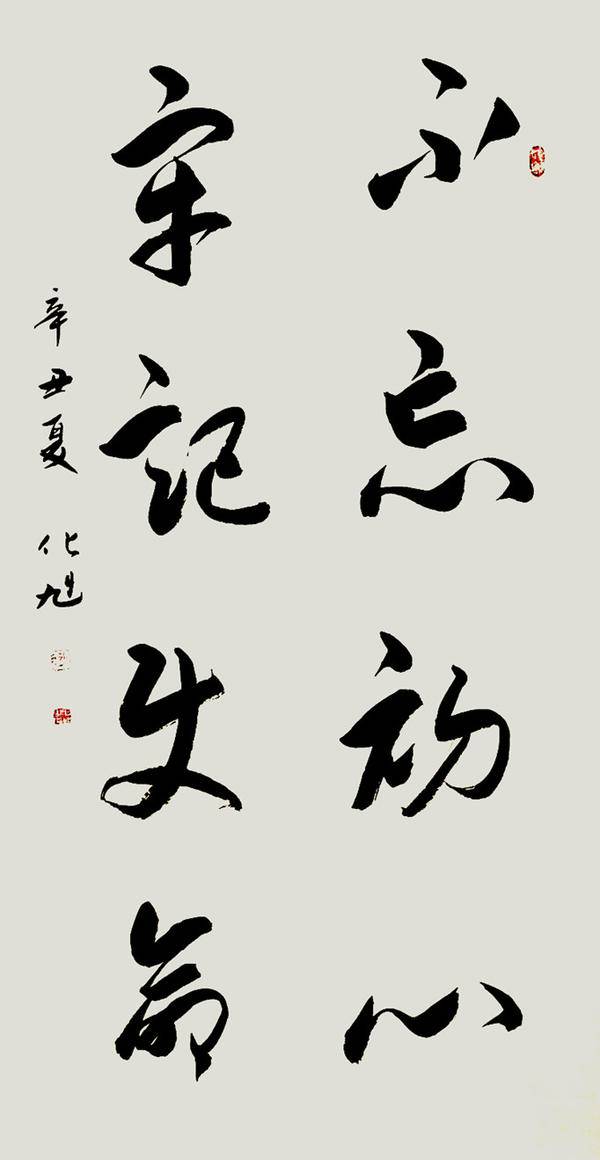 不忘初心
牢記使命
辛丑夏 化旭